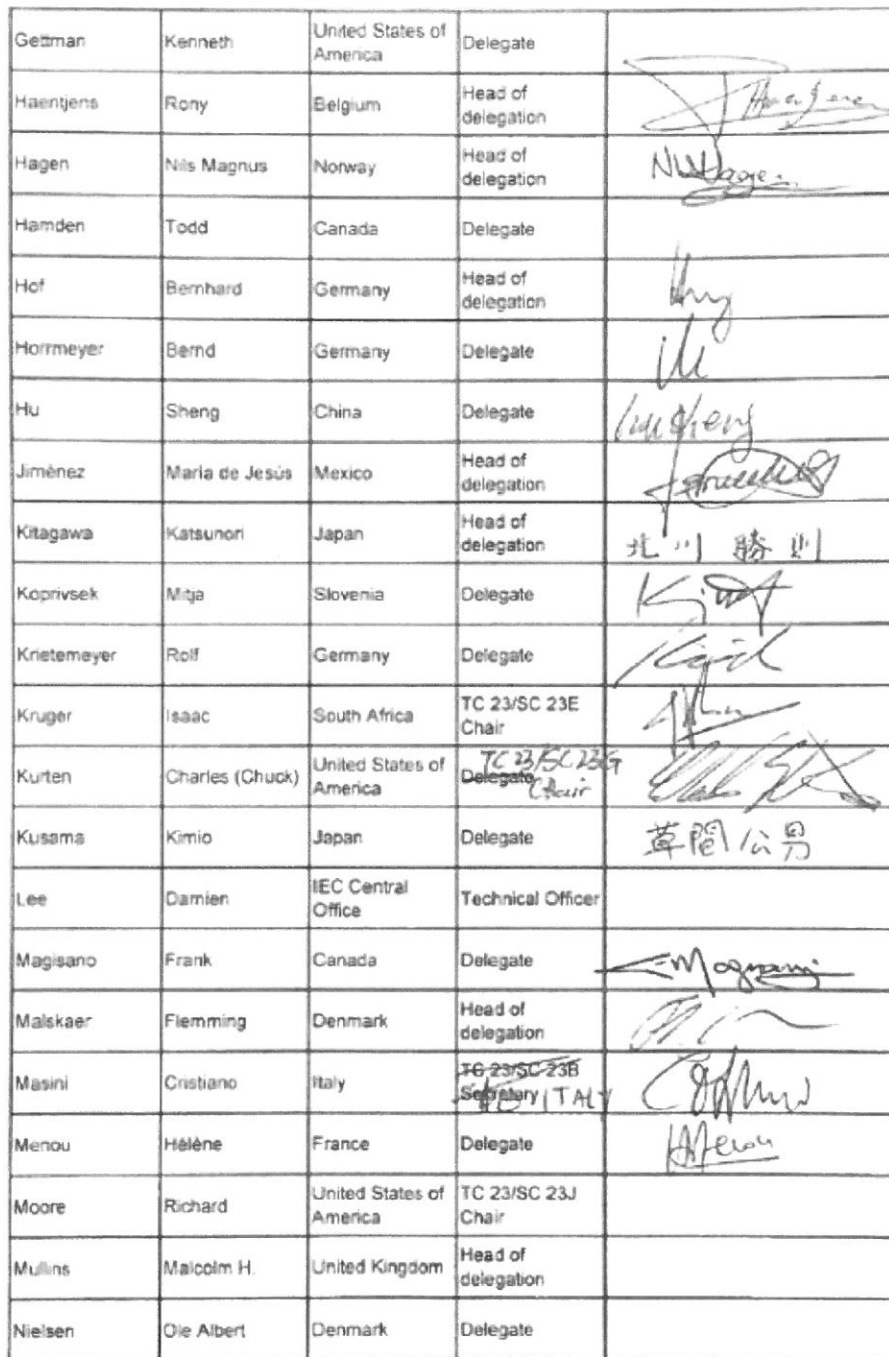 Gettman Kenneth United States of America Delegate
Haentjens Rony Belgium Head of delegation
Hagen Nils Magnus Norway Head of delegation
Hamden Todd Canada Delegate
Hof Bernhard Germany Head of delegation
Horrmeyer Bernd Germany Delegate
Hu Sheng China Delegate
Jimènez Maria de Jesús Mexico Head of delegation
Kitagawa Katsunori Japan Head of delegation 北川 勝則
Koprivsek Mitja Slovenia Delegate
Krietemeyer Rolf Germany Delegate
Kruger Isaac South Africa TC 23/SC 23E Chair
Kurten Charles (Chuck) United States of America Delegate TC 23/SC 23G Chair
Kusama Kimio Japan Delegate 草間公男
Lee Damien IEC Central Office Technical Officer
Magisano Frank Canada Delegate
Malskaer Flemming Denmark Head of delegation
Masini Cristiano Italy TC 23/SC 23B Secretary ITALY
Menou Hélène France Delegate
Moore Richard United States of America TC 23/SC 23J Chair
Mullins Malcolm H. United Kingdom Head of delegation
Nielsen Ole Albert Denmark Delegate